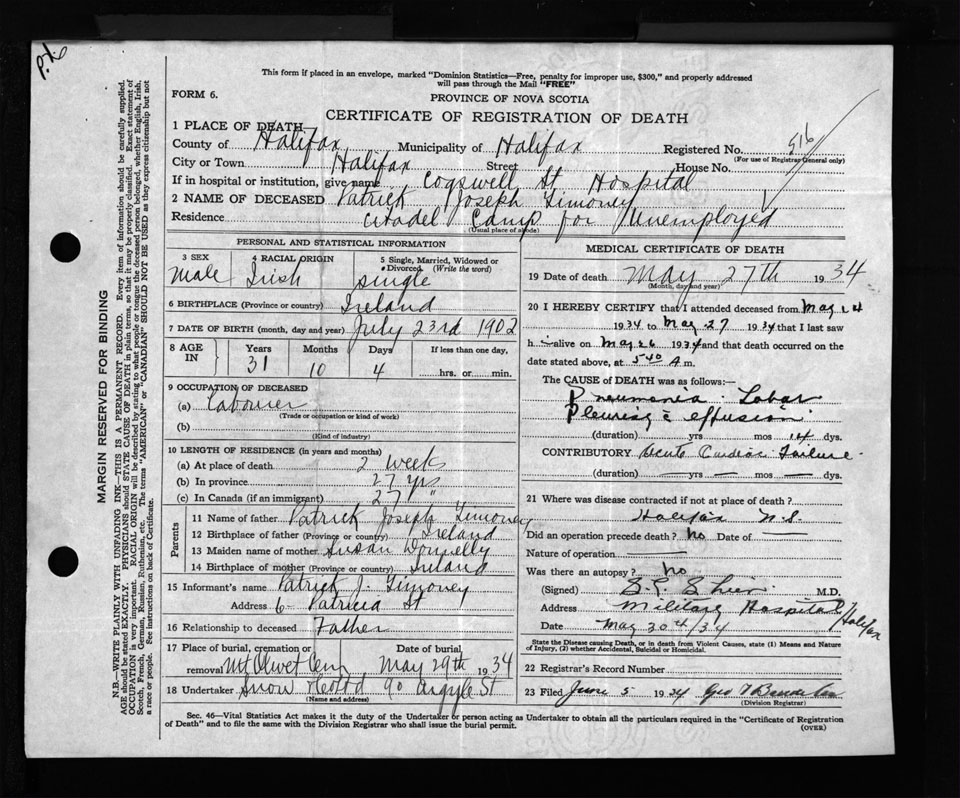 P.d.
This form if placed in an envelope, marked "Dominion Statistics—Free, penalty for improper use, $300," and properly addressed
will pass through the Mail "FREE"
FORM 6.
PROVINCE OF NOVA SCOTIA
CERTIFICATE OF REGISTRATION OF DEATH
1 PLACE OF DEATH
County of Halifax Municipality of Halifax Registered No. 516
(For use of Registrar General only)
City or Town Halifax Street House No.
If in hospital or institution, give name Cogswell St Hospital
2 NAME OF DECEASED Patrick Joseph Timoney
Residence Citadel Camp for Unemployed
(Usual place of abode)
PERSONAL AND STATISTICAL INFORMATION
3 SEX 4 RACIAL ORIGIN 5 Single, Married, Widowed or Divorced (Write the word)
Male Irish single
6 BIRTHPLACE (Province or country) Ireland
7 DATE OF BIRTH (month, day and year) July 23rd 1902
8 AGE IN Years Months Days If less than one day,
31 10 4 hrs. or min.
9 OCCUPATION OF DECEASED
(a) Labourer
(Trade or occupation or kind of work)
(b)
(Kind of industry)
10 LENGTH OF RESIDENCE (in years and months)
(a) At place of death 2 weeks
(b) In province 27 yrs
(c) In Canada (if an immigrant) 27 "
Parents
11 Name of father Patrick Joseph Timoney
12 Birthplace of father (Province or country) Ireland
13 Maiden name of mother Susan Donnelly
14 Birthplace of mother (Province or country) Ireland
15 Informant's name Patrick J. Timoney
Address 6 Patricia St
16 Relationship to deceased Father
17 Place of burial, cremation or removal Date of burial
Mt Olivet Cem May 29th 1934
18 Undertaker Snow & Co Ltd 90 Argyle St
(Name and address)
MEDICAL CERTIFICATE OF DEATH
19 Date of death May 27th 1934
(Month, day and year)
20 I HEREBY CERTIFY that I attended deceased from May 14
1934 to May 27 1934 that I last saw
h alive on May 26 1934 and that death occurred on the
date stated above, at 5 40 A m.
The CAUSE of DEATH was as follows:—
Pneumonia Lobar
Pleurisy c effusion
(duration) yrs mos 14 dys.
CONTRIBUTORY Acute Cardiac Failure
(duration) yrs — mos — dys.
21 Where was disease contracted if not at place of death?
Halifax N.S.
Did an operation precede death? No Date of —
Nature of operation —
Was there an autopsy? No
(Signed) M.D.
Address Military Hospital Halifax
Date May 30th/34
State the Disease causing Death, or in death from Violent Causes, state (1) Means and Nature
of Injury, (2) whether Accidental, Suicidal or Homicidal.
22 Registrar's Record Number
23 Filed June 5 1934 Geo
(Division Registrar)
Sec. 46—Vital Statistics Act makes it the duty of the Undertaker or person acting as Undertaker to obtain all the particulars required in the "Certificate of Registration
of Death" and to file the same with the Division Registrar who shall issue the burial permit.
(OVER)
MARGIN RESERVED FOR BINDING
N.B.—WRITE PLAINLY WITH UNFADING INK—THIS IS A PERMANENT RECORD. Every item of information should be carefully supplied.
AGE should be stated EXACTLY. PHYSICIANS should STATE CAUSE OF DEATH in plain terms, so that it may be properly classified. Exact statement of
OCCUPATION is very important. RACIAL ORIGIN will be described by stating to what people or tongue the deceased person belonged, whether English, Irish,
Scotch, French, German, Russian, Ruthenian, etc. The terms "AMERICAN" or "CANADIAN" SHOULD NOT BE USED as they express citizenship but not
a race or people. See instructions on back of Certificate.